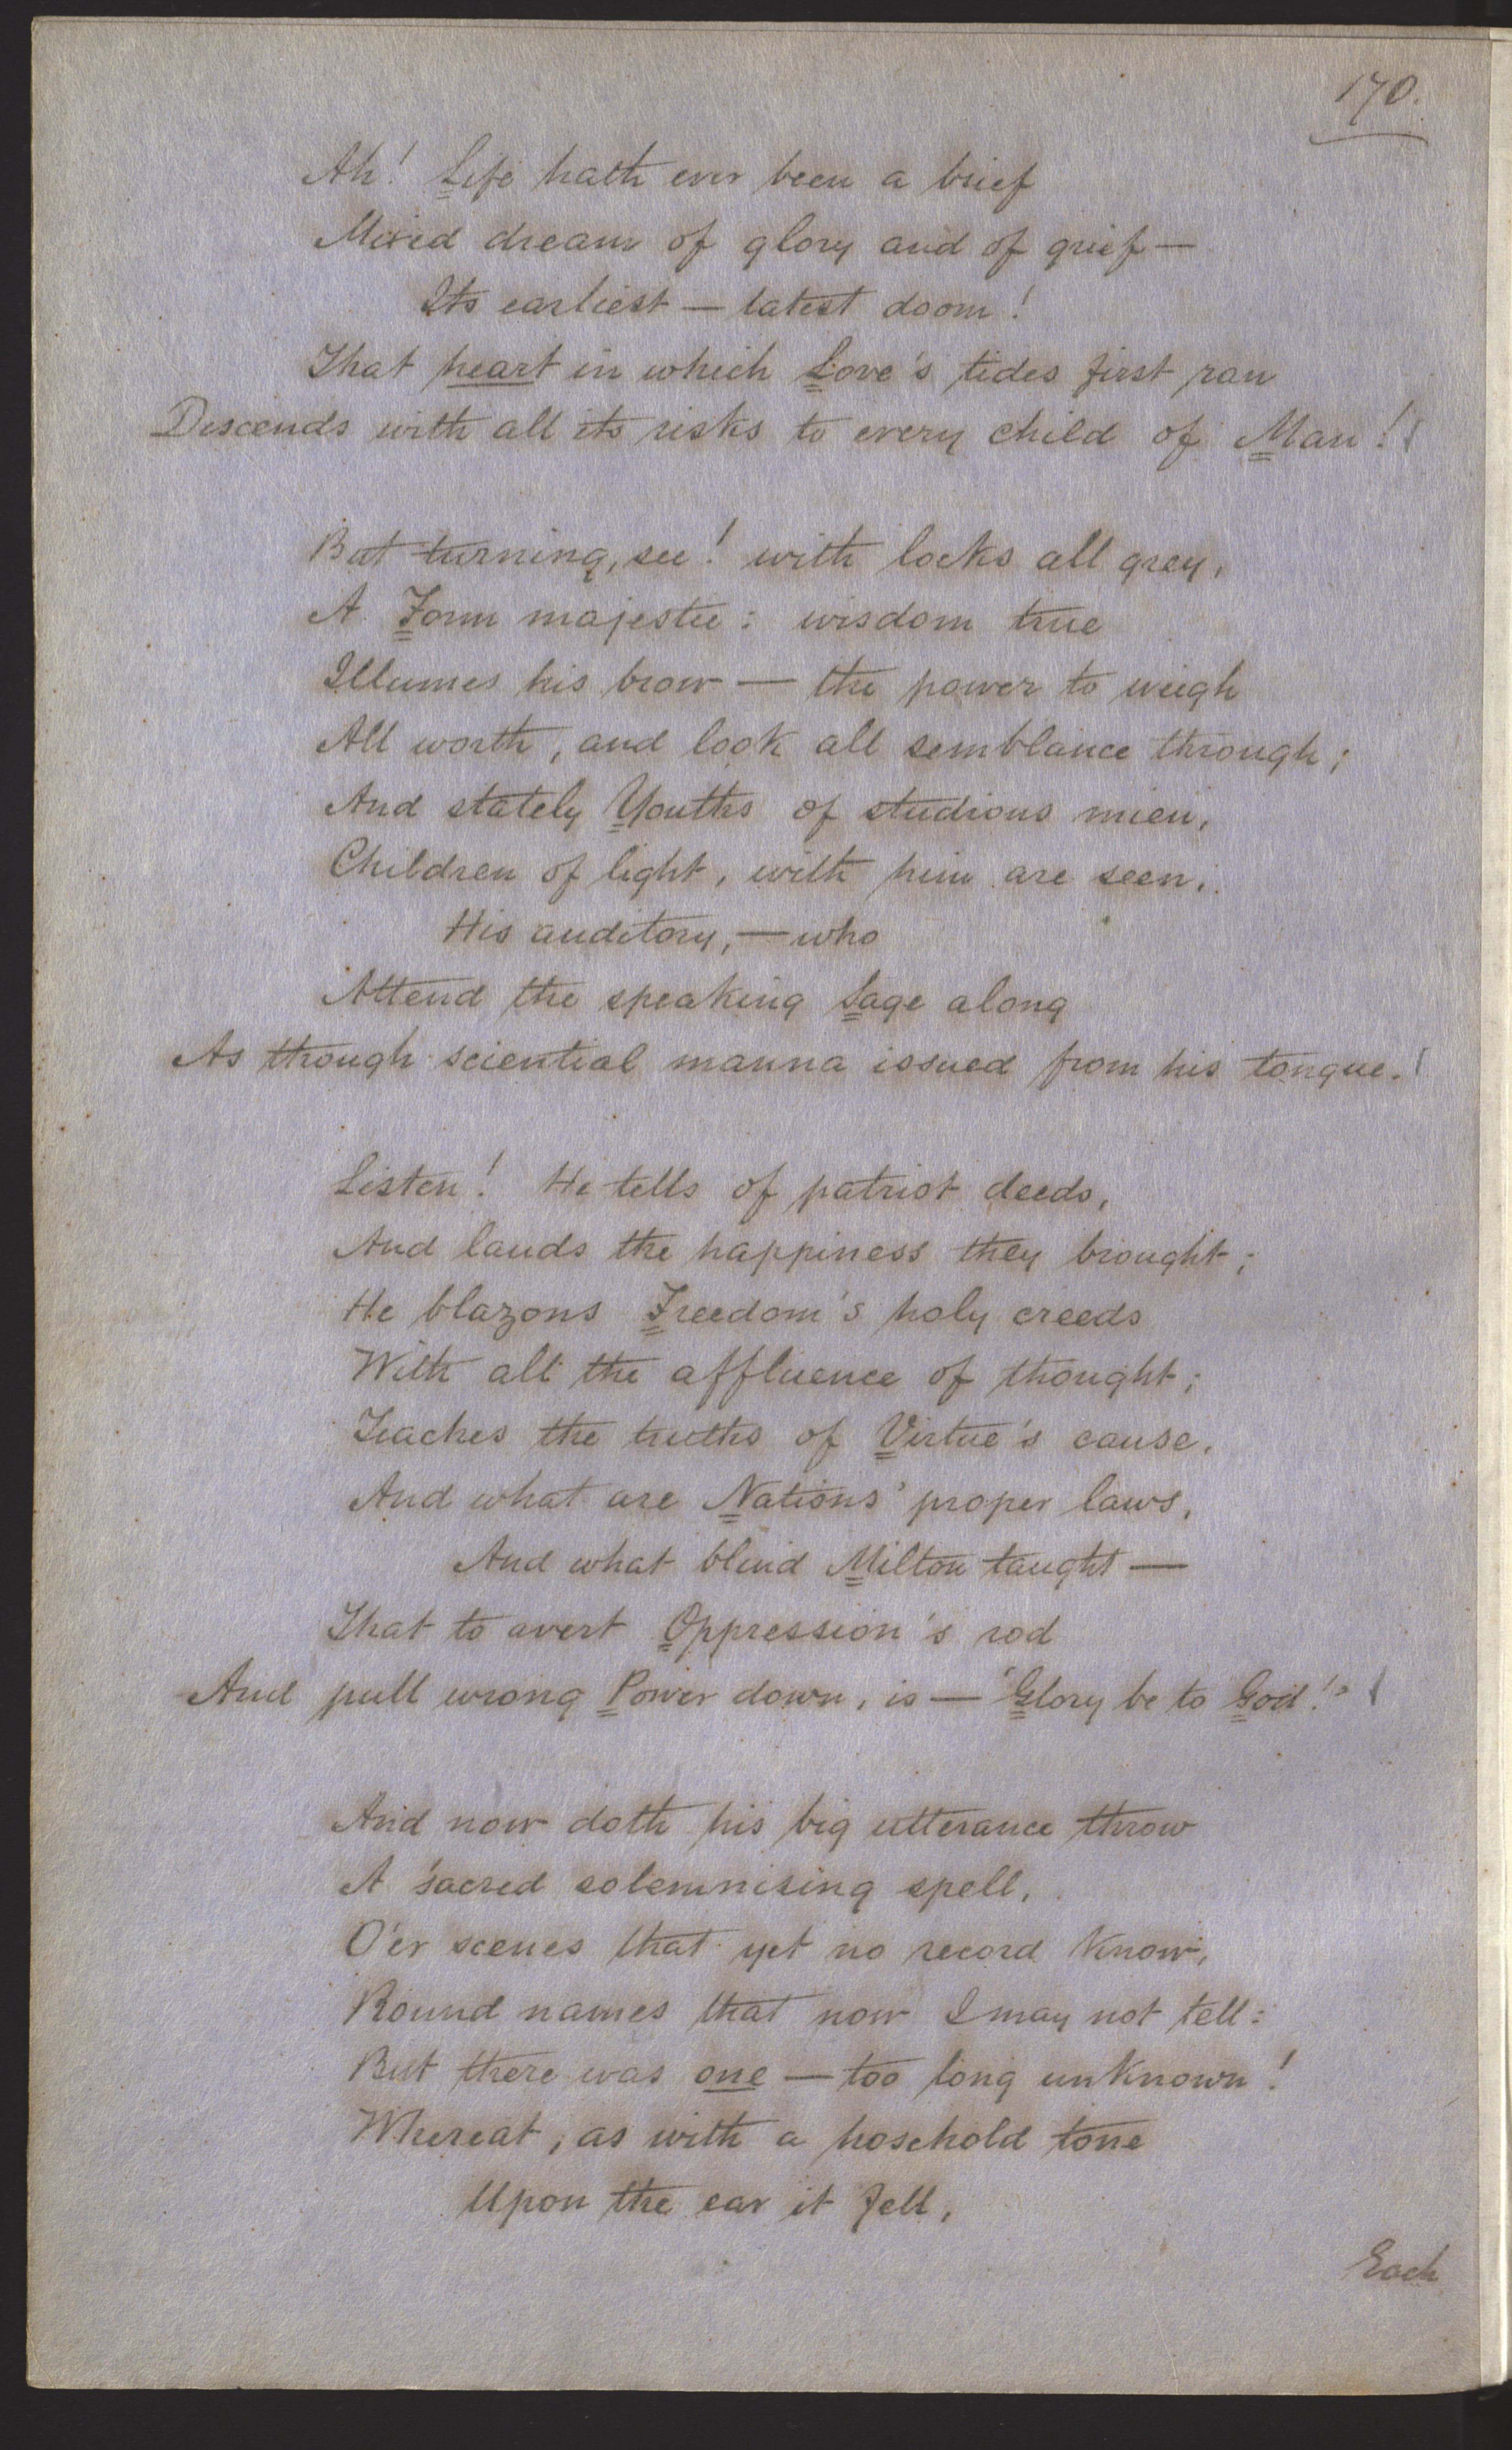 170.
Ah! Life hath ever been a brief
Mixed dream of glory and of grief —
Its earliest — latest doom!
That heart in which Love's tides first ran
Descends with all its risks to every child of Man!
But turning, see! with locks all grey,
A Form majestic: wisdom true
Illumes his brow — the power to weigh
All worth, and look all semblance through;
And stately Youths of studious mien,
Children of light, with him are seen,
His auditory, — who
Attend the speaking Sage along
As though sciential manna issued from his tongue.
Listen! He tells of patriot deeds,
And lauds the happiness they brought;
He blazons Freedom's holy creeds
With all the affluence of thought;
Teaches the truths of Virtue's cause,
And what are Nations' proper laws,
And what blind Milton taught —
That to avert Oppression's rod
And pull wrong Power down, is — 'Glory be to God!'
And now doth his big utterance throw
A sacred solemnising spell,
O'er scenes that yet no record know,
Round names that now I may not tell:
But there was one — too long unknown!
Whereat, as with a hosehold tone
Upon the ear it fell,
Each